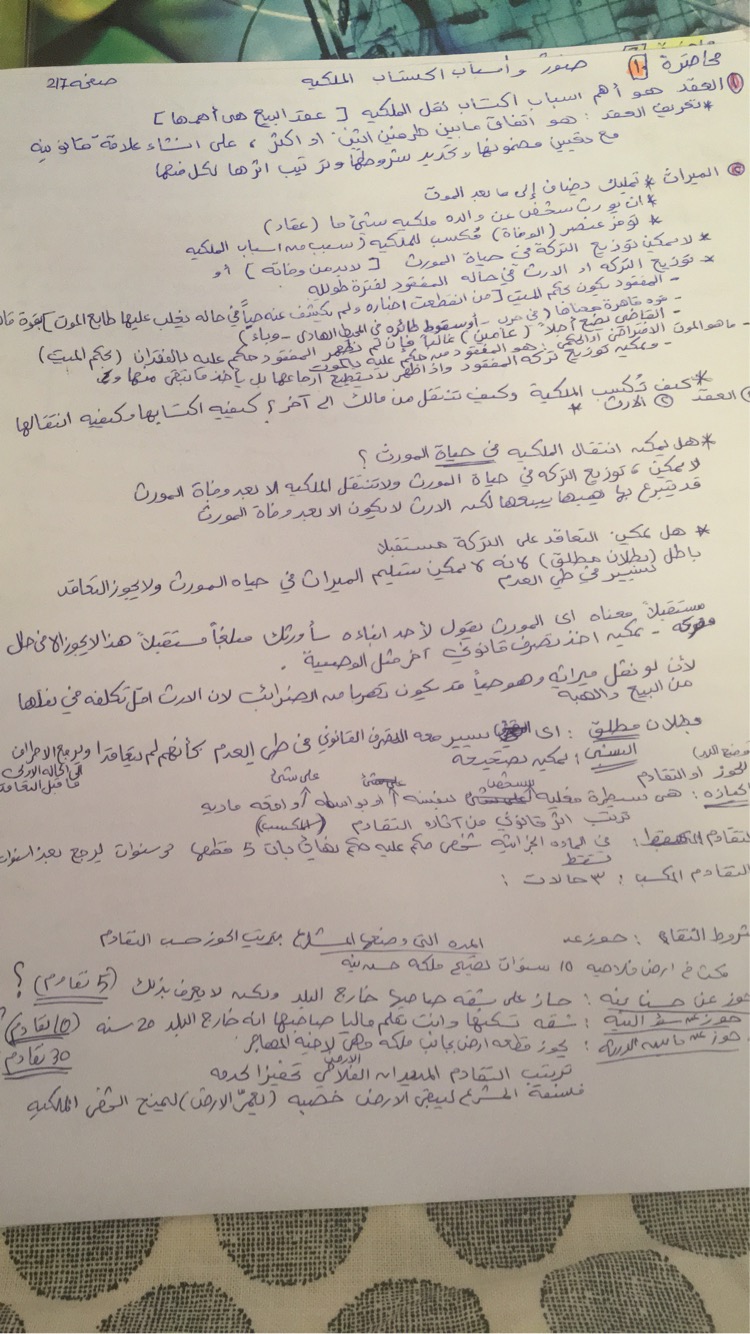 محاضرة 10 صور وأسباب اكتساب الملكيه صفحه 217
① العقد هو أهم اسباب اكتساب نقل الملكيه [عقد البيع هى أهمها]
* تعريف العقد : هو اتفاق مابين طرفين اثنين او اكثر ، على انشاء علاقة قانونيه
مع تعيين مضمونها وتحديد شروطها وترتيب اثرها لكل منهما
② الميراث * تمليك مضاف إلى ما بعد الموت
* ان يورث شخص عن والده ملكيه شئ ما (عقار)
* توفر عنصر (الوفاة) مُكسب للملكيه (سبب من اسباب الملكيه
* لا يمكن توزيع التركة في حياة المورث [لابد من وفاته] أو
* توزيع التركه او الارث في حاله المفقود لفترة طويله
- المفقود يكون بحكم الميت [من انقطعت اخباره ولم يكشف عنه حياً في حاله يغلب عليها طابع الموت] بقوة
- قوه قاهرة (في حرب - أو سقوط طائره في المحيط الهادى - وباء)
- القاضى يضع أجلاً (عامين) غالباً فإن لم يظهر المفقود حكم عليه بالفقدان (بحكم الميت)
- ماهو الموت الافتراضى أو الحكمي : هو المفقود من حكم عليه بالموت
- ويمكن توزيع تركه المفقود واذا ظهر لا يستطيع ارجاعها بل يأخذ ما تبقى منها
* كيف تُكسب الملكية وكيف تنتقل من مالك الى آخر ؟ كيفيه اكتسابها وكيفيه انتقالها
العقد ② الارث *
* هل يمكن انتقال الملكيه في حياة المورث ؟
لا يمكن ، توزيع التركه في حياة المورث ولا تنتقل الملكيه الا بعد وفاة المورث
قد يتبرع بها يهبها يبيعها لكن الارث لا يكون الا بعد وفاة المورث
* هل يمكن التعاقد على التركة مستقبلاً
باطل (بطلان مطلق) لانه لا يمكن تسليم الميراث في حياه المورث ولا يجوز التعاقد
تسيير في طي العدم
مستقبلاً معناه اى المورث يقول لأحد ابناءه سأورثك مبلغاً مستقبلاً هذا لا يجوز الا في حال
- يمكن اخذ تصرف قانوني آخر مثل الوصية .
لأن لو نقل ميراثه وهو حياً قد يكون تهرباً من الضرائب لان الارث اقل تكلفه في نقلها
من البيع والهبه
بطلان مطلق : اى يسيير معه التصرف القانوني في طي العدم كأنهم لم يتعاقدا ويرجع الاطراف
الى الحاله الاولى
ما قبل التعاقد
النسبى : يمكن تصحيحه
(وضع اليد) الحوز او التقادم
الحيازه : هى سيطرة فعليه شخص بنفسه أو بواسطه على شئ أو واقعه ماديه
ترتب اثر قانوني من آثاره التقادم (المكسب)
التقادم المسقط : في الماده الجزائيه شخص حكم عليه حكم نهائي بأن 5 قطعها سنوات ليرجع بعد سنوات
تسقط
التقادم المكسب : ٣ حالات :
شروط التقادم : حوز عن المده التى وضعها المشرع يترتب الحوز حسب التقادم
مكث في ارض فلاحيه 15 سنوات تصبح ملكه حسن نيه
حوز عن حسن نيه : حاز على شقه صاحبها خارج البلد ولكن لا يعرف بذلك (5 تقادم) ؟
حوز عن سوء النيه : شقه تسكنها وانت تعلم صاحبها انه خارج البلد 20 سنه (10 تقادم)
حوز عن : يحوز قطعه ارض بجانب ملكه وهي لأخيه المهاجر 30 تقادم
ترتب التقادم الفلاحي تحفيزاً لخدمه الارض
فلسفة المشرع ليبقى الارض خصبه (يعمّر الارض) ليمنح الملكيه